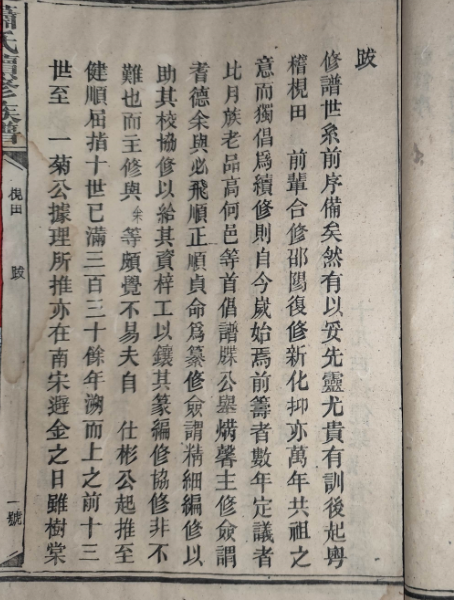 跋
修譜世系前序備矣然有以妥先靈尤貴有訓後起粵
稽梘田 前輩合修邵陽復修新化抑亦萬年共祖之
意而獨倡爲續修則自今歲始焉前籌者數年定議者
比月族老品高何邑等首倡譜牒公舉 馨主修僉謂
耆德余與必飛順正順貞命爲纂修僉謂精細編修以
助其校協修以給其資梓工以鑲其篆編修協修非不
難也而主修與 等頗覺不易夫自 仕彬公起推至
健順屈指十世已滿三百三十餘年溯而上之前十三
世至 一菊公據理所推亦在南宋避金之日雖樹棠
蕭氏續修族譜
梘田 跋
一號